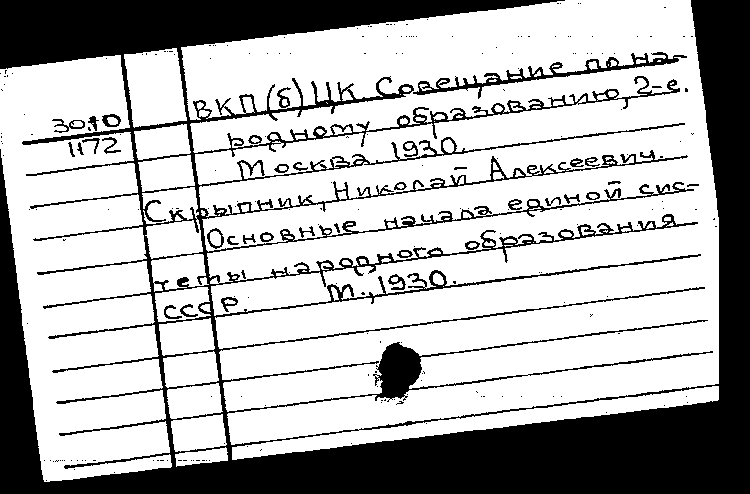 ВКП(б) ЦК Совещание по на-
3010
родному образованию, 2-е.
1172
Москва. 1930.
Скрыпник, Николай Алексеевич.
Основные начала единой сис-
темы народного образования
СССР. М., 1930.